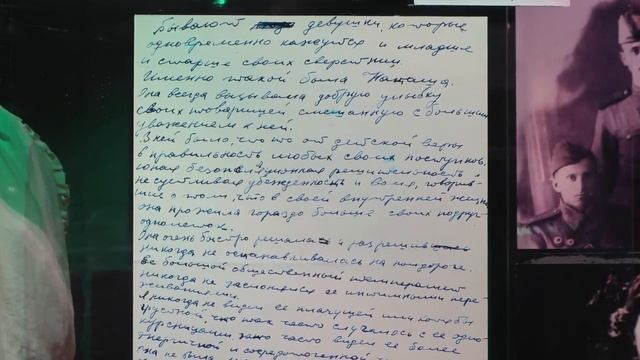 Бывают девушки, которые
одновременно кажутся и младше
и старше своих сверстниц.
Именно такой была Наташа.
Она всегда вызывала добрую улыбку
своих товарищей смешанную с большим
уважением к ней.
В ней было что-то от детской веры
в правильность любых своих поступков,
юная безапелляционная решительность и
не суетливая убежденность и воля, говорив-
шие о том, что в своей внутренней жизни
она прожила гораздо больше своих подруг
одногодок.
Она очень быстро решала и разрешив
никогда не останавливалась на полдороге.
Ее большой общественный темперамент
никогда не заслонялся ее интимными пере-
живаниями.
Я никогда не видел ее плачущей или хотя бы
грустной, что так часто случалось с ее одно-
курсницами, зато часто видел ее более
энергичной и сосредоточенной
она не была